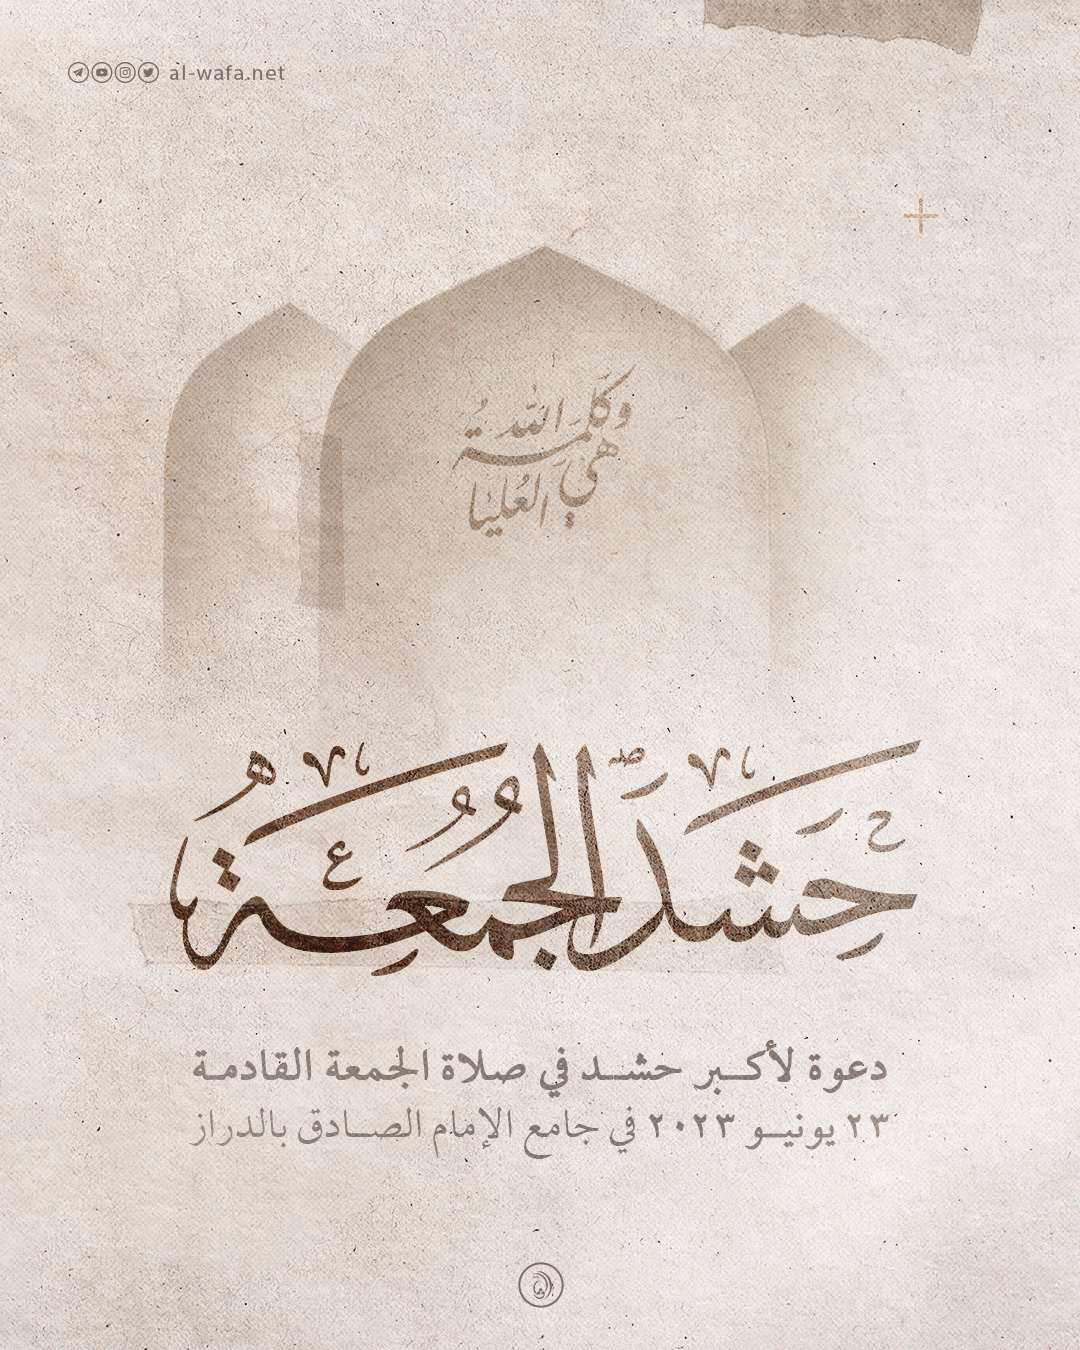 al-wafa.net
وكلمة الله
هي العليا
حشد الجمعة
دعوة لأكبر حشد في صلاة الجمعة القادمة
٢٣ يونيو ٢٠٢٣ في جامع الإمام الصادق بالدراز